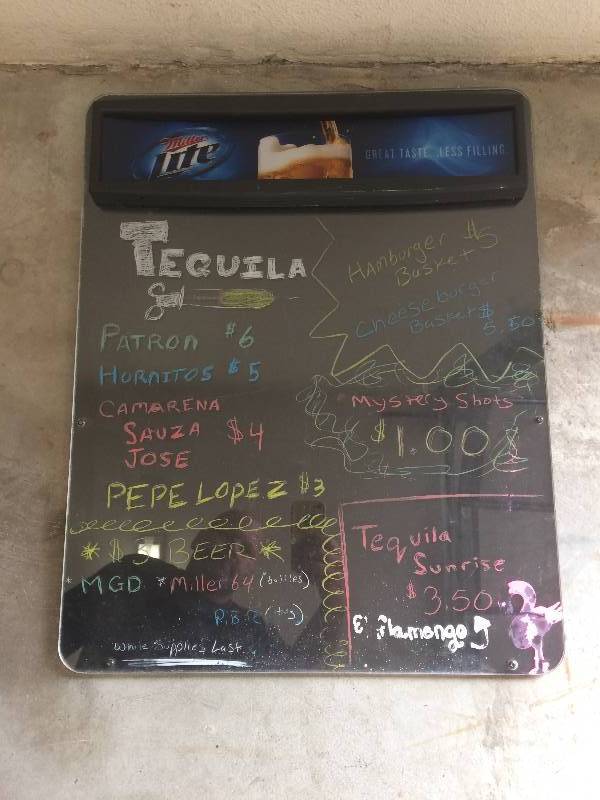 Miller
Lite
GREAT TASTE. LESS FILLING.
TEQUILA
PATRON $6
HORNITOS $5
CAMARENA
SAUZA $4
JOSE
PEPE LOPEZ $3
* $3 BEER *
* MGD * Miller 64 (bottles)
P.B.R
While Supplies Last
Hamburger $5
Basket
Cheeseburger
Basket $
5.50
Mystery Shots
$1.00
Tequila
Sunrise
$3.50
Flamongo